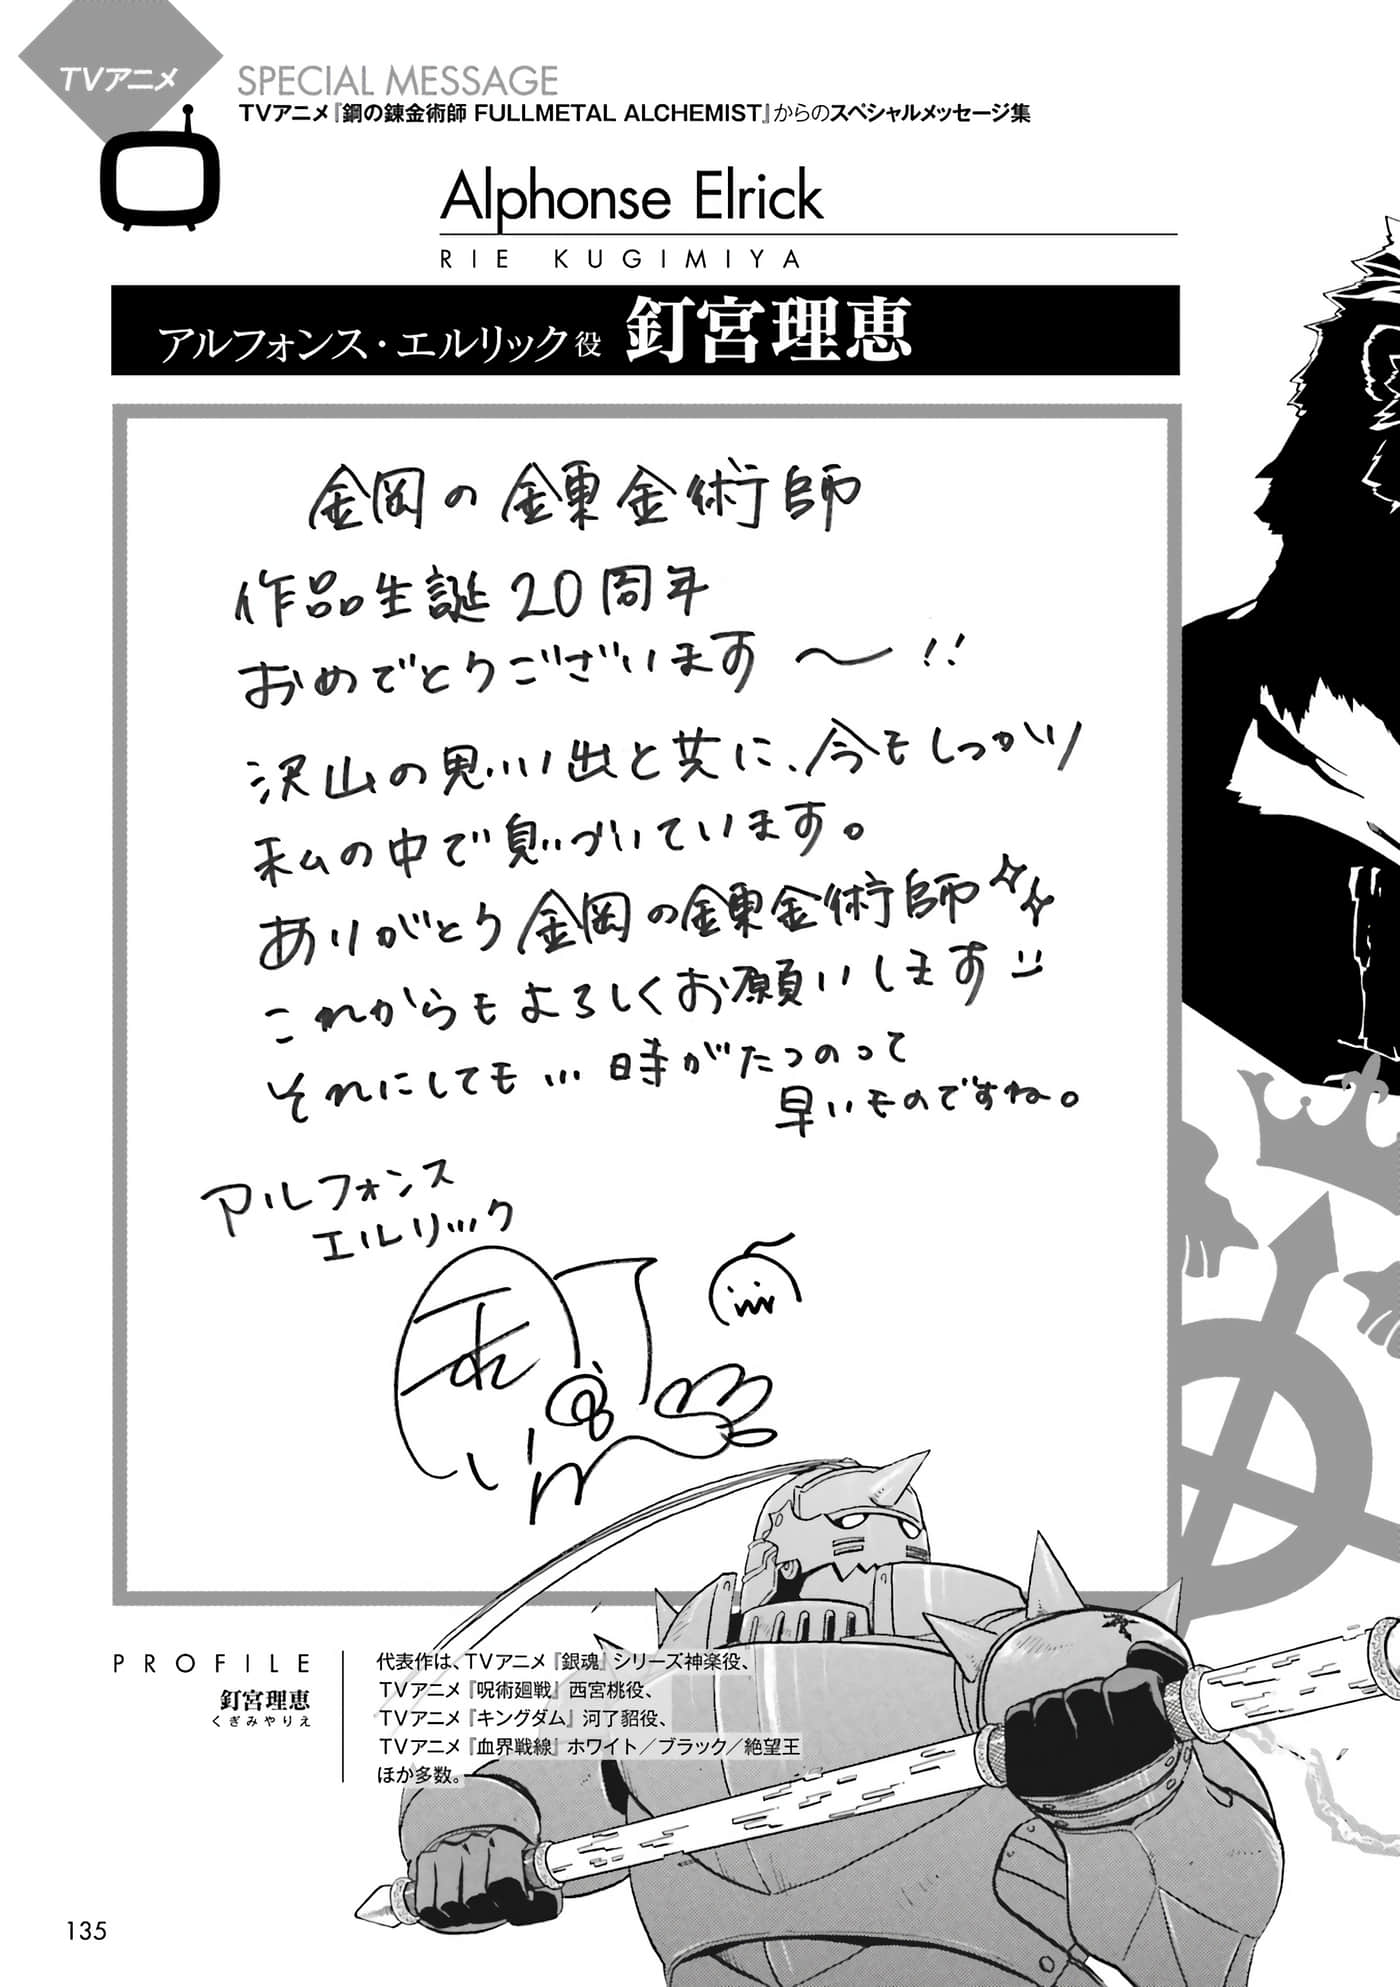 TVアニメ
SPECIAL MESSAGE
TVアニメ『鋼の錬金術師 FULLMETAL ALCHEMIST』からのスペシャルメッセージ集
Alphonse Elrick
RIE KUGIMIYA
アルフォンス・エルリック役 釘宮理恵
鋼の錬金術師
作品生誕20周年
おめでとうございます〜!!
沢山の思い出と共に、今もしっかり
私の中で息づいています。
ありがとう鋼の錬金術師
これからもよろしくお願いします
それにしても…時がたつのって
早いものですね。
アルフォンス
エルリック
PROFILE
釘宮理恵
くぎみやりえ
代表作は、TVアニメ『銀魂』シリーズ神楽役、
TVアニメ『呪術廻戦』西宮桃役、
TVアニメ『キングダム』河了貂役、
TVアニメ『血界戦線』ホワイト／ブラック／絶望王
ほか多数。
135